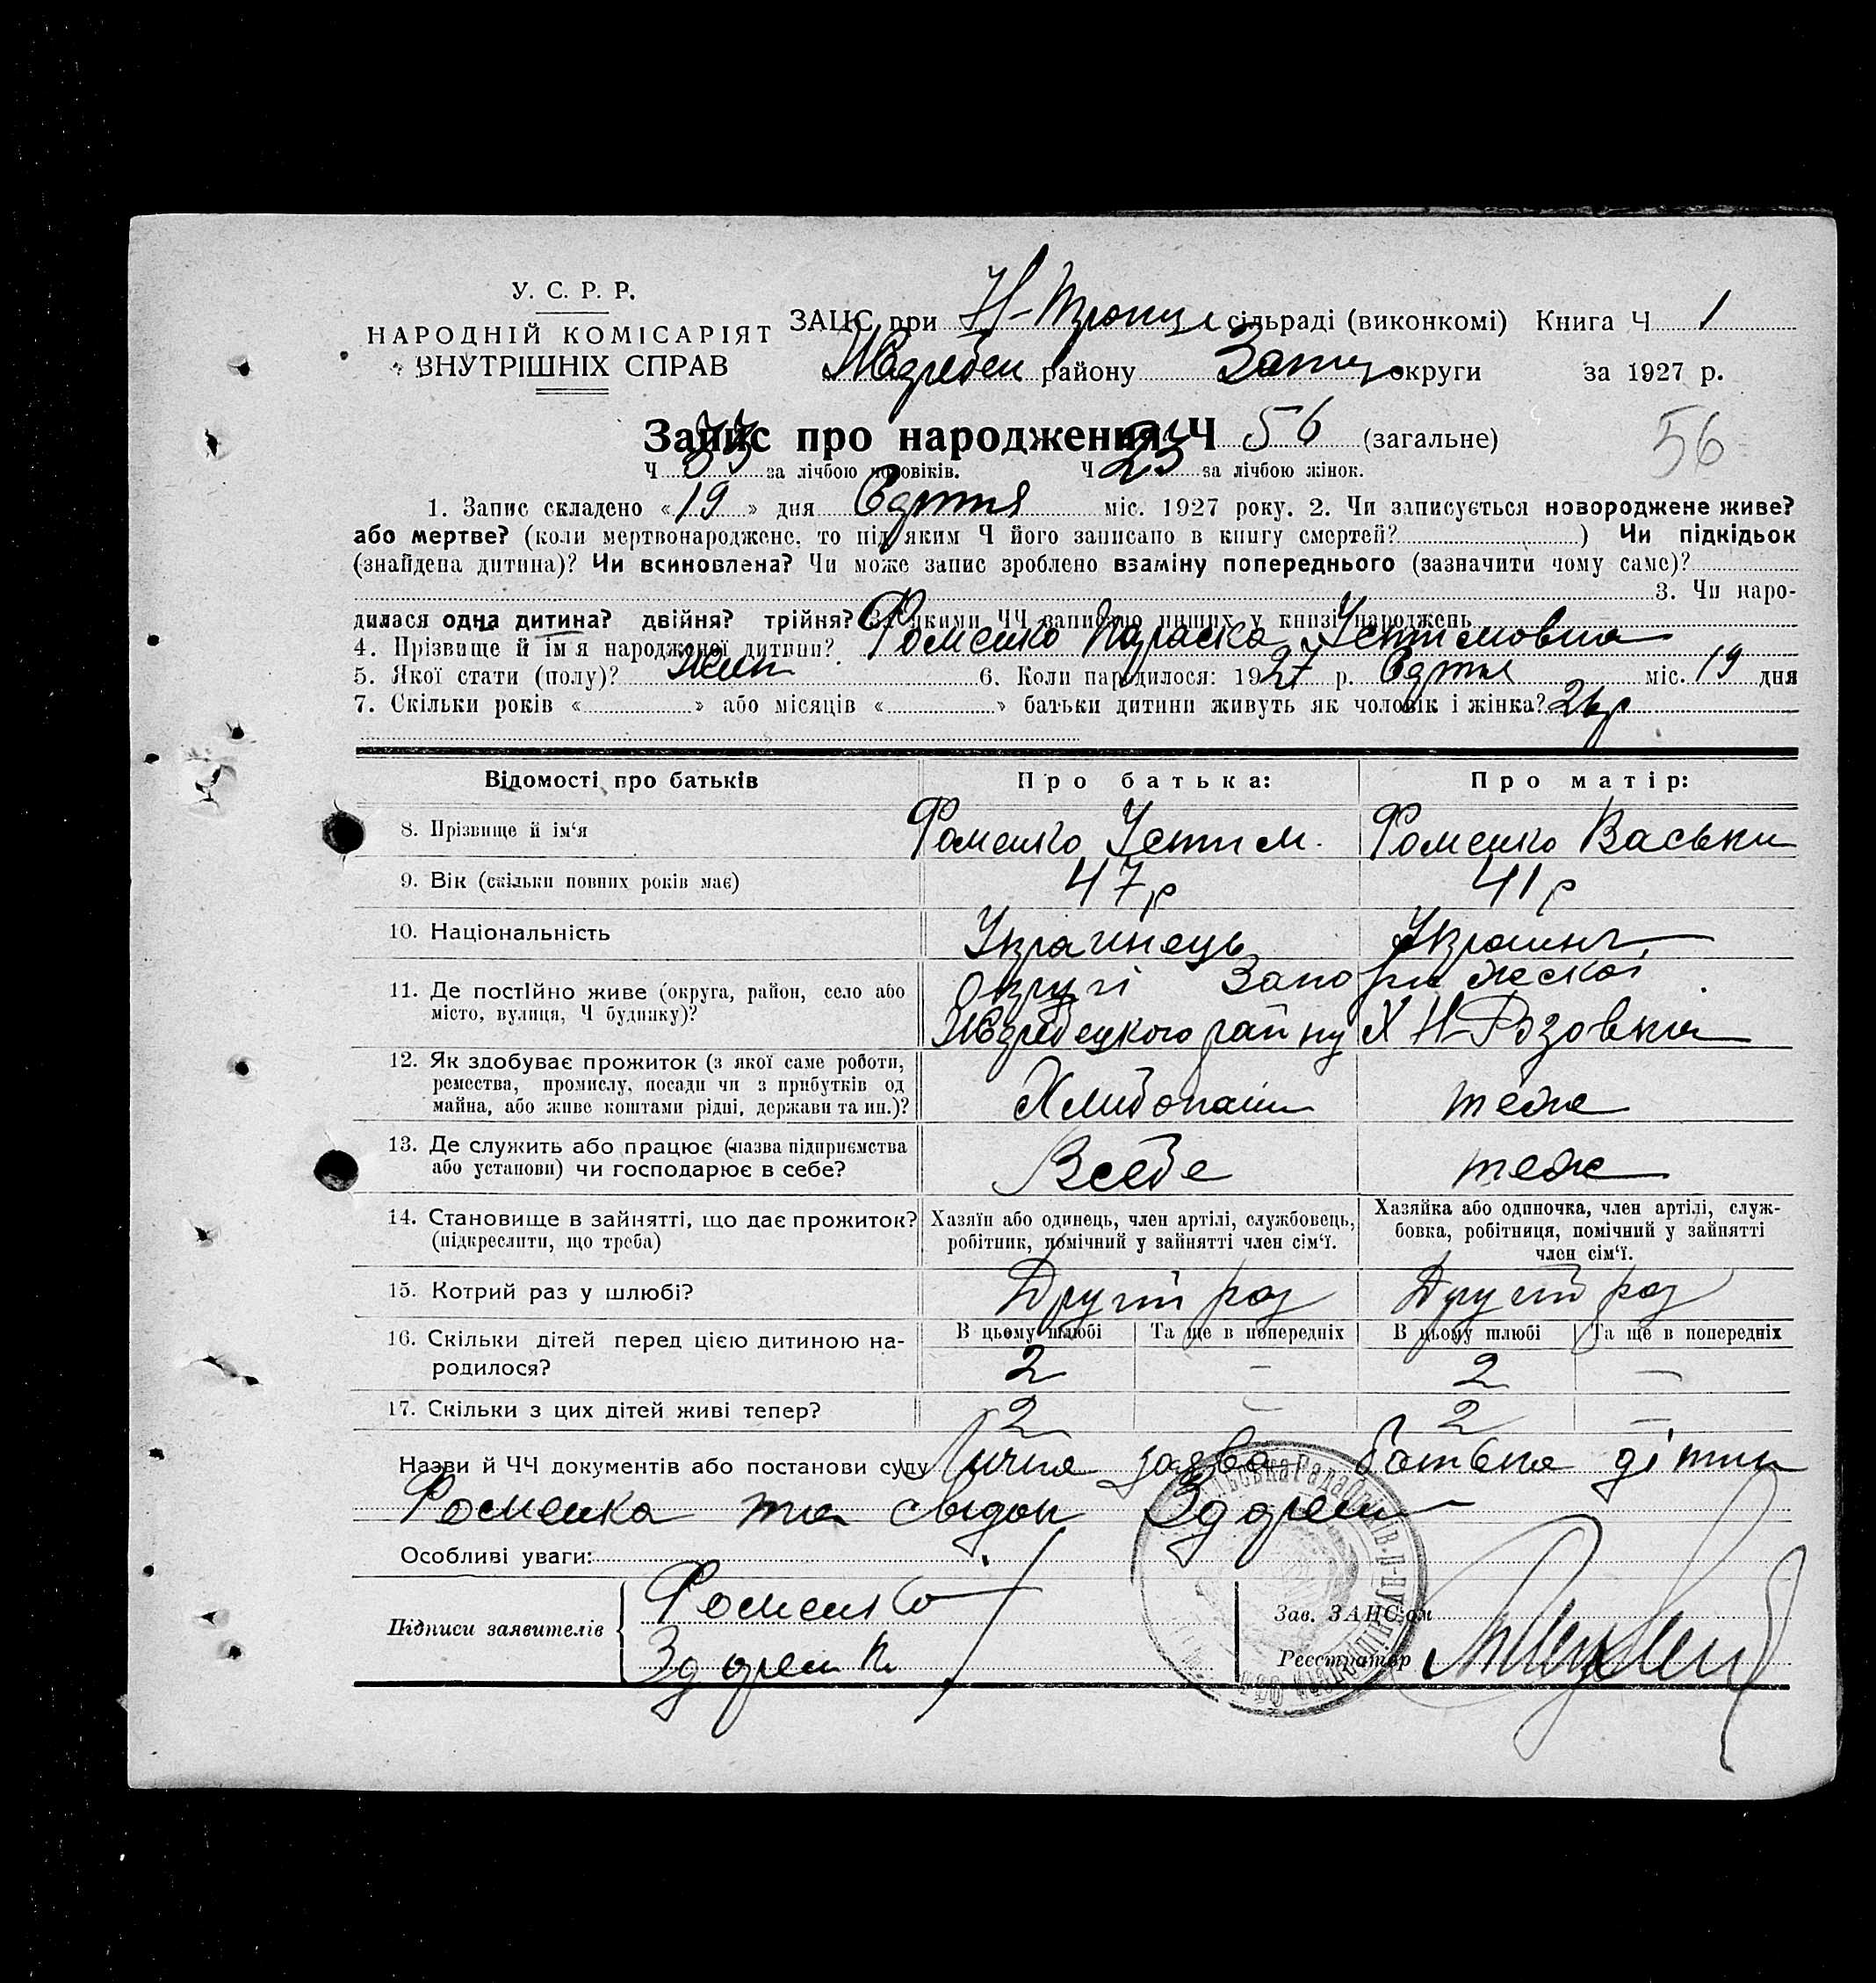 У. С. Р. Р.
НАРОДНІЙ КОМІСАРІЯТ
ВНУТРІШНІХ СПРАВ
ЗАЦС при сільраді (виконкомі) Книга Ч 1
району Запор округи за 1927 р.
Запис про народження Ч 56 (загальне)
56
Ч 33 за лічбою чоловіків. Ч 23 за лічбою жінок.
1. Запис складено «19» дня міс. 1927 року. 2. Чи записується новороджене живе?
або мертве? (коли мертвонароджене, то під яким Ч його записано в книгу смертей? ) Чи підкідьок
(знайдена дитина)? Чи всиновлена? Чи може запис зроблено взаміну попереднього (зазначити чому саме)?
3. Чи наро-
дилася одна дитина? двійня? трійня? За якими ЧЧ записано инших у книзі народжень
4. Прізвище й ім'я народженої дитини? Фоменко Параска Устимовна
5. Якої стати (полу)? Жин 6. Коли народилося: 1927 р. міс. 19 дня
7. Скільки років « » або місяців « » батьки дитини живуть як чоловік і жінка?
Відомості про батьків Про батька: Про матір:
8. Прізвище й ім'я Фоменко Устим. Фоменко Васьки
9. Вік (скільки повних років має) 47 р 41 р
10. Національність Украинець Украинк
11. Де постійно живе (округа, район, село або округі Запорижескоі
місто, вулиця, Ч будинку)? района Х Н-Розовка
12. Як здобуває прожиток (з якої саме роботи,
ремества, промислу, посади чи з прибутків од
майна, або живе коштами рідні, держави та ин.)? Хлибопаш теже
13. Де служить або працює (назва підприємства
або установи) чи господарює в себе? Всебе теже
14. Становище в зайнятті, що дає прожиток? Хазяїн або одинець, член артілі, службовець, Хазяйка або одиночка, член артілі, служ-
(підкреслити, що треба) робітник, помічний у зайнятті член сім'ї. бовка, робітниця, помічний у зайнятті
член сім'ї.
15. Котрий раз у шлюбі? Другий раз Другий раз
16. Скільки дітей перед цією дитиною на- В цьому шлюбі Та ще в попередніх В цьому шлюбі Та ще в попередніх
родилося? 2 – 2 –
17. Скільки з цих дітей живі тепер? 2 – 2 –
Назви й ЧЧ документів або постанови суду Лична заява батька дітин
Фоменка та свидок
Особливі уваги:
Підписи заявителів Фоменко
Зав. ЗАЦС'ом
Реєстратор